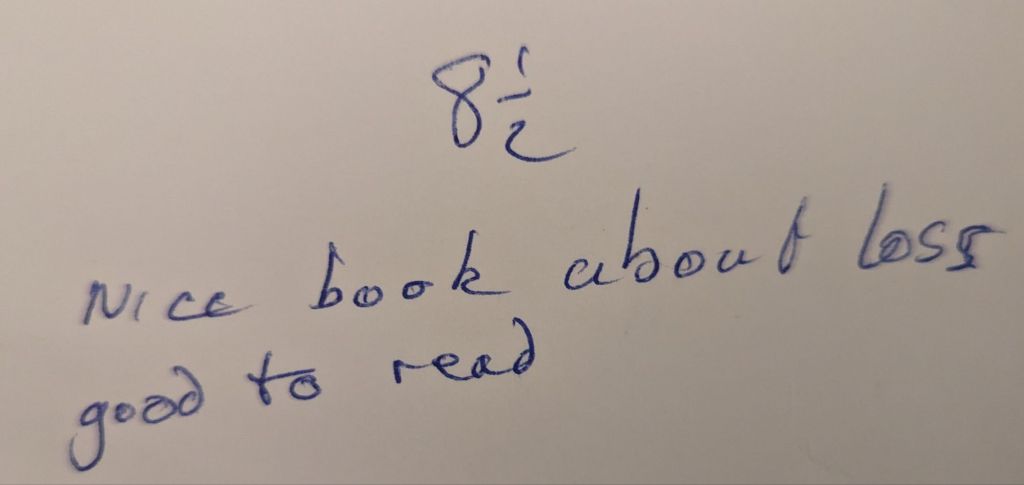 8½
Nice book about loss
good to read